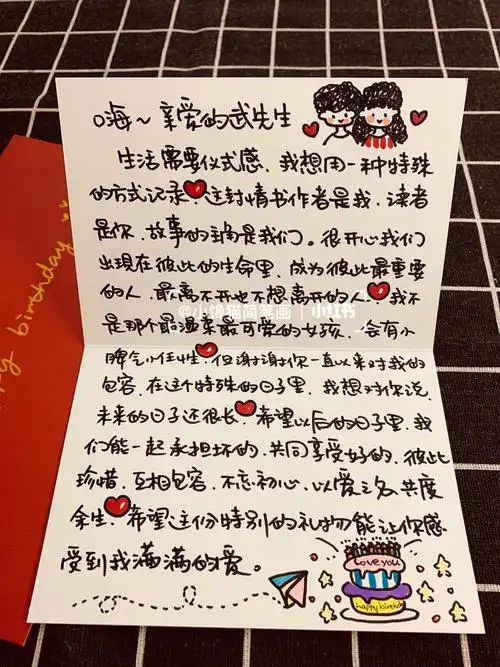 嗨~亲爱的武先生
生活需要仪式感、我想用一种特殊
的方式记录 这封情书作者是我、读者
是你、故事的封面是我们。很开心我们
出现在彼此的生命里、成为彼此最重要
的人、最离不开也不想离开的人 我不
@小馋猫简笔画 小红书
是那个最漂亮最可爱的女孩、会有小
脾气小任性 但谢谢你一直以来对我的
包容、在这个特殊的日子里、我想对你说、
未来的日子还很长 希望以后的日子里、我
们能一起承担坏的、共同享受好的、彼此
珍惜、互相包容、不忘初心、以爱之名 共度
余生 希望这份特别的礼物能让你感
受到我满满的爱。
Love you
happy birthday
birthday